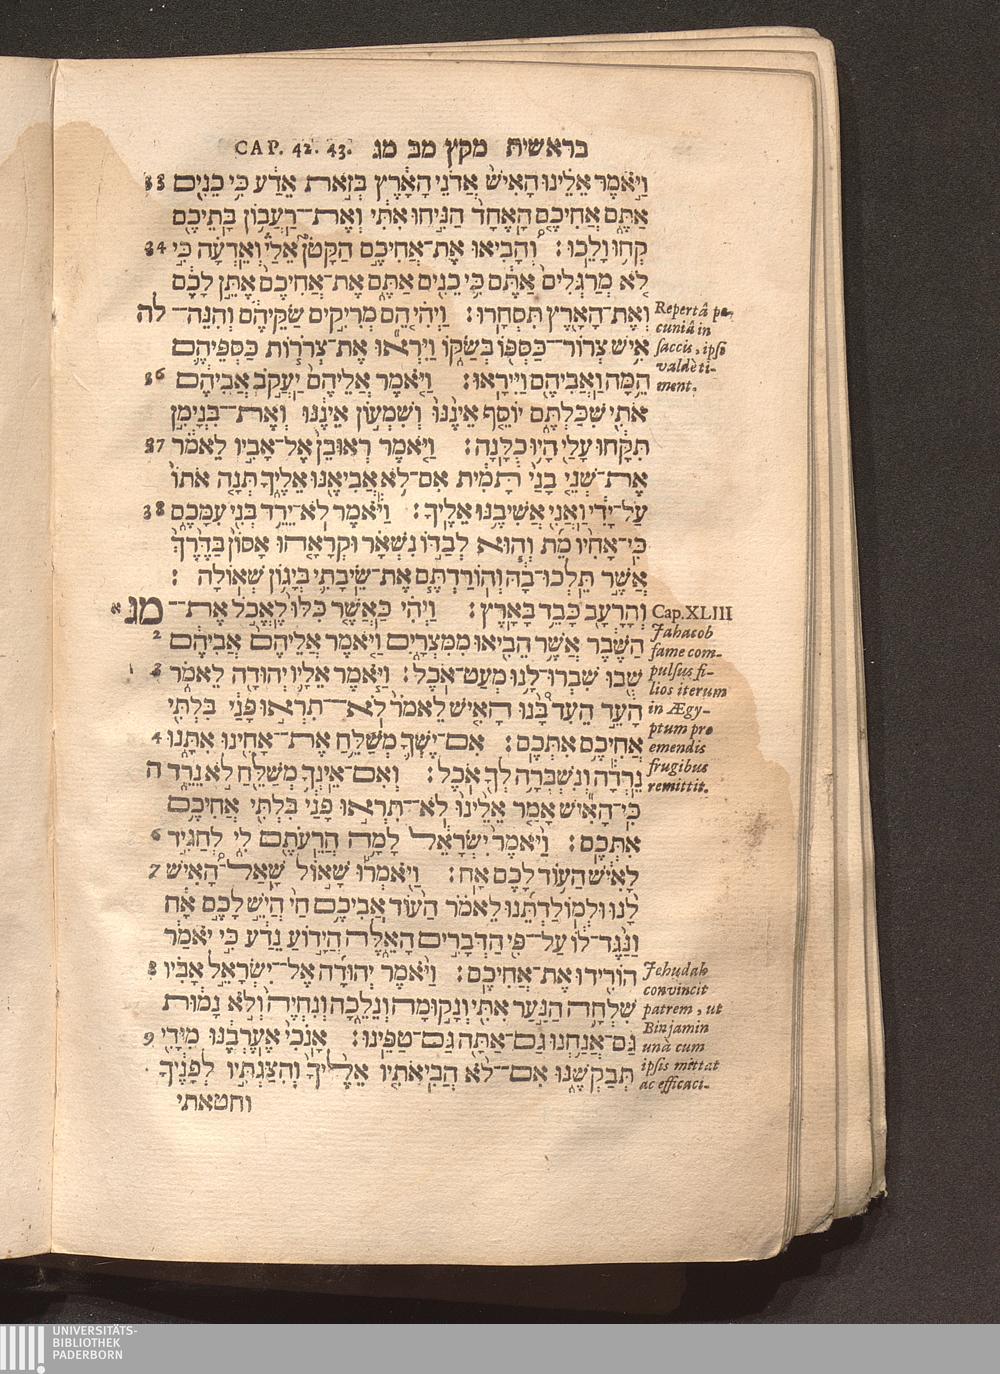 בראשית מקץ מב מג CAP. 42. 43.
וַיֹּאמֶר אֵלֵינוּ הָאִישׁ אֲדֹנֵי הָאָרֶץ בְּזֹאת אֵדַע כִּי כֵנִים 33
אַתֶּם אֲחִיכֶם הָאֶחָד הַנִּיחוּ אִתִּי וְאֶת־רַעֲבוֹן בָּתֵּיכֶם
קְחוּ וָלֵכוּ׃ וְהָבִיאוּ אֶת־אֲחִיכֶם הַקָּטֹן אֵלַי וְאֵדְעָה כִּי 34
לֹא מְרַגְּלִים אַתֶּם כִּי כֵנִים אַתֶּם אֶת־אֲחִיכֶם אֶתֵּן לָכֶם
וְאֶת־הָאָרֶץ תִּסְחָרוּ׃ וַיְהִי הֵם מְרִיקִים שַׂקֵּיהֶם וְהִנֵּה־ לה
אִישׁ צְרוֹר־כַּסְפּוֹ בְּשַׂקּוֹ וַיִּרְאוּ אֶת־צְרֹרוֹת כַּסְפֵּיהֶם
הֵמָּה וַאֲבִיהֶם וַיִּירָאוּ׃ וַיֹּאמֶר אֲלֵיהֶם יַעֲקֹב אֲבִיהֶם 36
אֹתִי שִׁכַּלְתֶּם יוֹסֵף אֵינֶנּוּ וְשִׁמְעוֹן אֵינֶנּוּ וְאֶת־בִּנְיָמִן
תִּקָּחוּ עָלַי הָיוּ כֻלָּנָה׃ וַיֹּאמֶר רְאוּבֵן אֶל־אָבִיו לֵאמֹר 37
אֶת־שְׁנֵי בָנַי תָּמִית אִם־לֹא אֲבִיאֶנּוּ אֵלֶיךָ תְּנָה אֹתוֹ
עַל־יָדִי וַאֲנִי אֲשִׁיבֶנּוּ אֵלֶיךָ׃ וַיֹּאמֶר לֹא־יֵרֵד בְּנִי עִמָּכֶם 38
כִּי־אָחִיו מֵת וְהוּא לְבַדּוֹ נִשְׁאָר וּקְרָאָהוּ אָסוֹן בַּדֶּרֶךְ
אֲשֶׁר תֵּלְכוּ־בָהּ וְהוֹרַדְתֶּם אֶת־שֵׂיבָתִי בְּיָגוֹן שְׁאוֹלָה׃
וְהָרָעָב כָּבֵד בָּאָרֶץ׃ וַיְהִי כַּאֲשֶׁר כִּלּוּ לֶאֱכֹל אֶת־ מג א
הַשֶּׁבֶר אֲשֶׁר הֵבִיאוּ מִמִּצְרָיִם וַיֹּאמֶר אֲלֵיהֶם אֲבִיהֶם 2
שֻׁבוּ שִׁבְרוּ־לָנוּ מְעַט־אֹכֶל׃ וַיֹּאמֶר אֵלָיו יְהוּדָה לֵאמֹר 3
הָעֵד הֵעִד בָּנוּ הָאִישׁ לֵאמֹר לֹא־תִרְאוּ פָנַי בִּלְתִּי
אֲחִיכֶם אִתְּכֶם׃ אִם־יֶשְׁךָ מְשַׁלֵּחַ אֶת־אָחִינוּ אִתָּנוּ 4
נֵרְדָה וְנִשְׁבְּרָה לְךָ אֹכֶל׃ וְאִם־אֵינְךָ מְשַׁלֵּחַ לֹא נֵרֵד ה
כִּי־הָאִישׁ אָמַר אֵלֵינוּ לֹא־תִרְאוּ פָנַי בִּלְתִּי אֲחִיכֶם
אִתְּכֶם׃ וַיֹּאמֶר יִשְׂרָאֵל לָמָה הֲרֵעֹתֶם לִי לְהַגִּיד 6
לָאִישׁ הַעוֹד לָכֶם אָח׃ וַיֹּאמְרוּ שָׁאוֹל שָׁאַל־הָאִישׁ 7
לָנוּ וּלְמוֹלַדְתֵּנוּ לֵאמֹר הַעוֹד אֲבִיכֶם חַי הֲיֵשׁ לָכֶם אָח
וַנַּגֶּד־לוֹ עַל־פִּי הַדְּבָרִים הָאֵלֶּה הֲיָדוֹעַ נֵדַע כִּי יֹאמַר
הוֹרִידוּ אֶת־אֲחִיכֶם׃ וַיֹּאמֶר יְהוּדָה אֶל־יִשְׂרָאֵל אָבִיו 8
שִׁלְחָה הַנַּעַר אִתִּי וְנָקוּמָה וְנֵלֵכָה וְנִחְיֶה וְלֹא נָמוּת
גַּם־אֲנַחְנוּ גַם־אַתָּה גַּם־טַפֵּינוּ׃ אָנֹכִי אֶעֶרְבֶנּוּ מִיָּדִי 9
תְּבַקְשֶׁנּוּ אִם־לֹא הֲבִיאֹתִיו אֵלֶיךָ וְהִצַּגְתִּיו לְפָנֶיךָ
וחטאתי
Repertâ pe-
cuniâ in
saccis, ipsi
valdè ti-
ment.
Cap. XLIII
Jahacob
fame com-
pulsus fi-
lios iterum
in Ægy-
ptum pro
emendis
frugibus
remittit.
Jehudah
convincit
patrem, ut
Binjamin
unà cum
ipsis mittat
ac efficaci-
UNIVERSITÄTS-
BIBLIOTHEK
PADERBORN